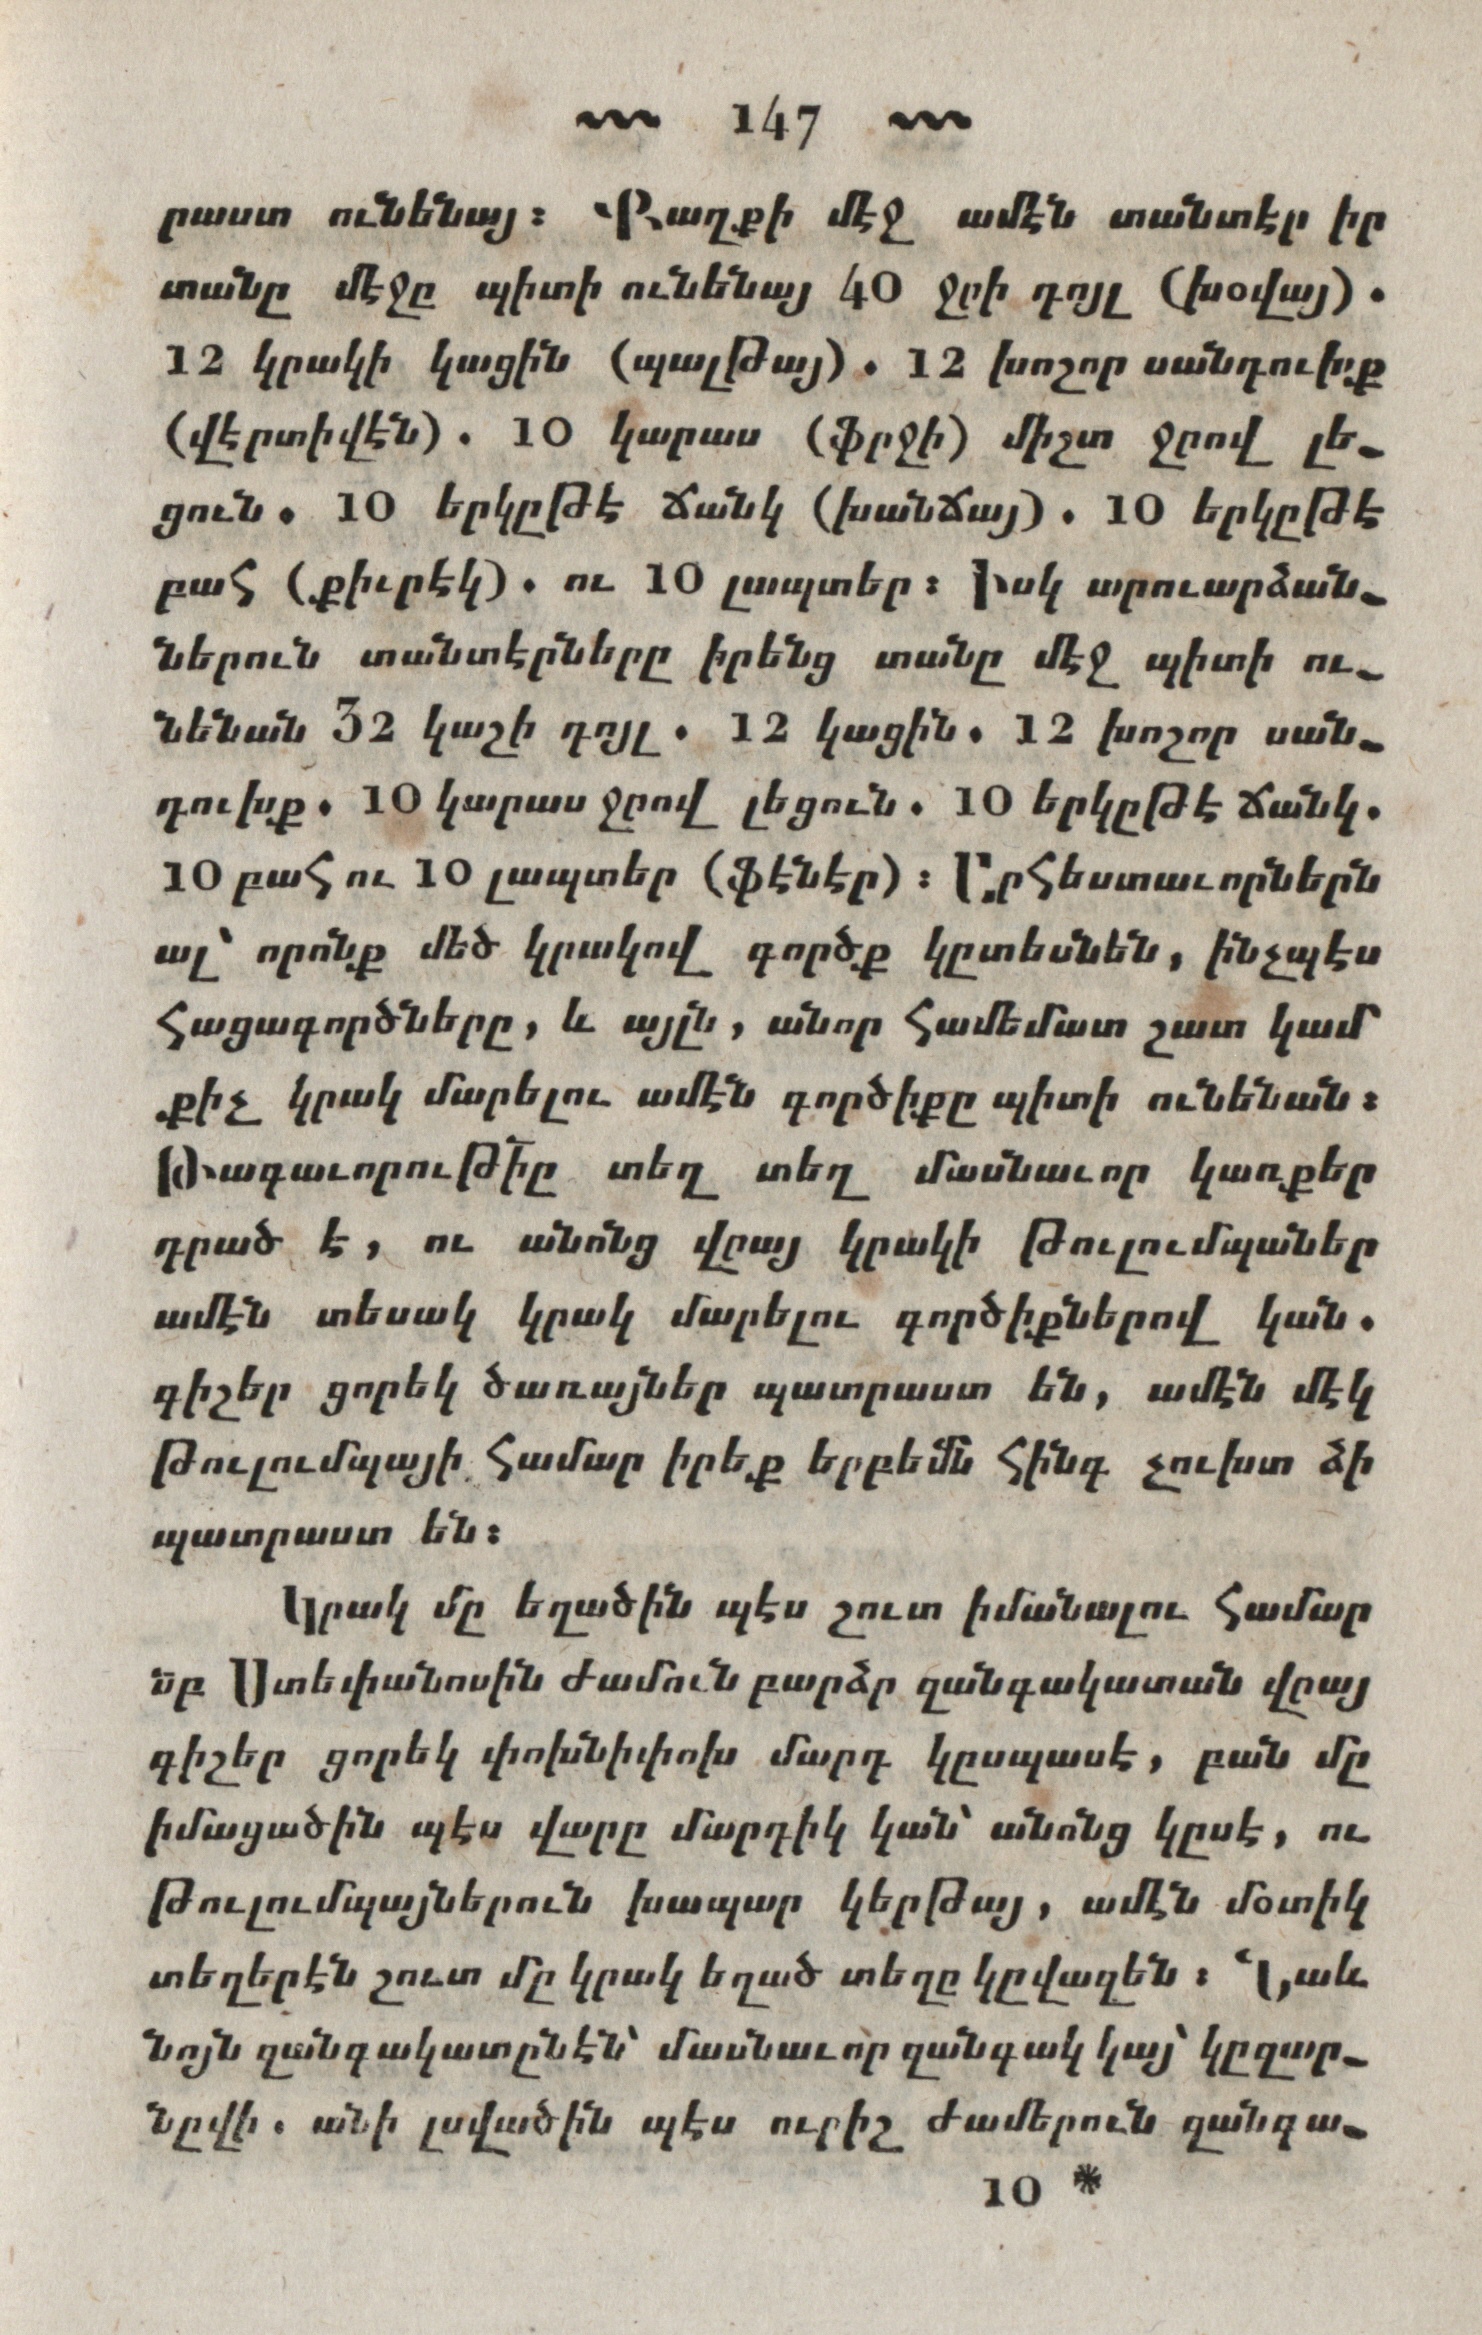 147
րաստ ունենայ։ Քաղքի մէջ ամէն տանտէր իր
տանը մէջը պիտի ունենայ 40 ջրի դոյլ (խօվայ).
12 կրակի կացին (պալթայ). 12 խոշոր սանդուխք
(վէրտիվէն). 10 կարաս (ֆրջի) միշտ ջրով լե-
ցուն. 10 երկըթէ ճանկ (խանճայ). 10 երկըթէ
բահ (քիւրէկ). ու 10 լապտեր։ Իսկ արուարձան-
ներուն տանտէրները իրենց տանը մէջ պիտի ու-
նենան 32 կաշի դոյլ. 12 կացին. 12 խոշոր սան-
դուխք. 10 կարաս ջրով լեցուն. 10 երկըթէ ճանկ.
10 բահ ու 10 լապտեր (ֆէնէր)։ Արհեստաւորներն
ալ՝ որոնք մեծ կրակով գործք կըտեսնեն, ինչպէս
հացագործները, և այլն, անոր համեմատ շատ կամ
քիչ կրակ մարելու ամէն գործիքը պիտի ունենան։
Թագաւորութիը տեղ տեղ մասնաւոր կառքեր
դրած է, ու անոնց վրայ կրակի թուլումպաներ
ամէն տեսակ կրակ մարելու գործիքներով կան.
գիշեր ցորեկ ծառայներ պատրաստ են, ամէն մէկ
թուլումպայի համար իրեք երբեմն հինգ չուխտ ձի
պատրաստ են։
Կրակ մը եղածին պէս շուտ իմանալու համար
սբ Ստեփանոսին ժամուն բարձր զանգակատան վրայ
գիշեր ցորեկ փոխնիփոխ մարդ կըսպասէ, բան մը
իմացածին պէս վարը մարդիկ կան՝ անոնց կըսէ, ու
թուլումպայներուն խապար կերթայ, ամէն մօտիկ
տեղերէն շուտ մը կրակ եղած տեղը կըվազեն։ Նաև
նոյն զանգակատընէն՝ մասնաւոր զանգակ կայ՝ կըզար-
նըվի. անի լսվածին պէս ուրիշ ժամերուն զանգա-
10 *